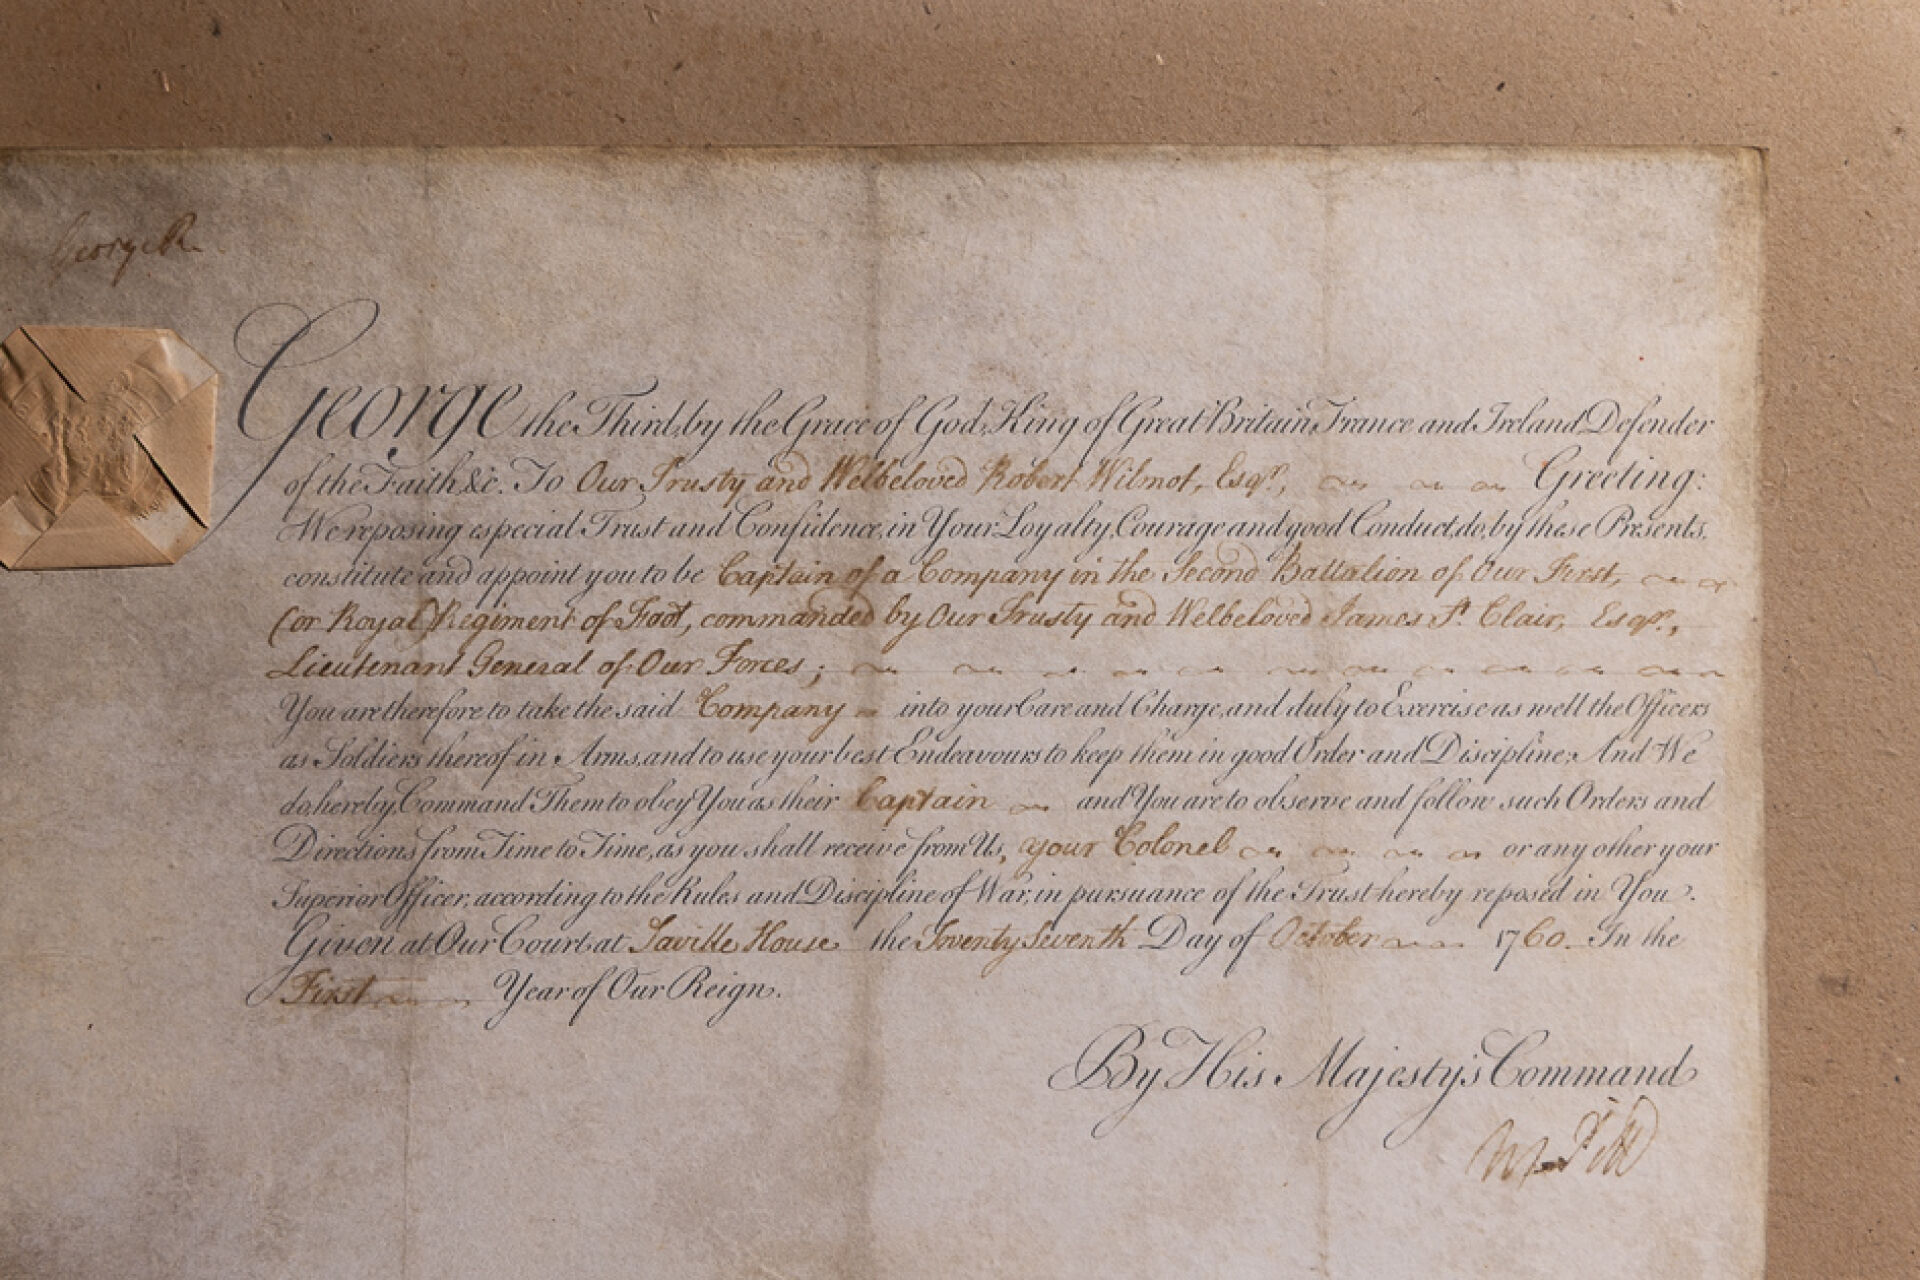 George R
George the Third, by the Grace of God, King of Great Britain, France and Ireland, Defender
of the Faith, &c. To Our Trusty and Welbeloved Robert Wilmot, Esqr., Greeting:
We reposing especial Trust and Confidence, in Your Loyalty, Courage and good Conduct, do, by these Presents,
constitute and appoint you to be Captain of a Company in the Second Battalion of Our First,
(or Royal) Regiment of Foot, commanded by Our Trusty and Welbeloved James St. Clair, Esqr.,
Lieutenant General of Our Forces;
You are therefore to take the said Company into your Care and Charge, and duly to Exercise as well the Officers
as Soldiers thereof in Arms, and to use your best Endeavours to keep them in good Order and Discipline; And We
do, hereby, Command Them to obey You as their Captain and You are to observe and follow such Orders and
Directions from Time to Time, as you shall receive from Us, your Colonel or any other your
Superior Officer, according to the Rules and Discipline of War, in pursuance of the Trust hereby reposed in You.
Given at Our Court at Saville House the Twenty Seventh Day of October 1760. In the
First Year of Our Reign.
By His Majesty's Command
W Pitt